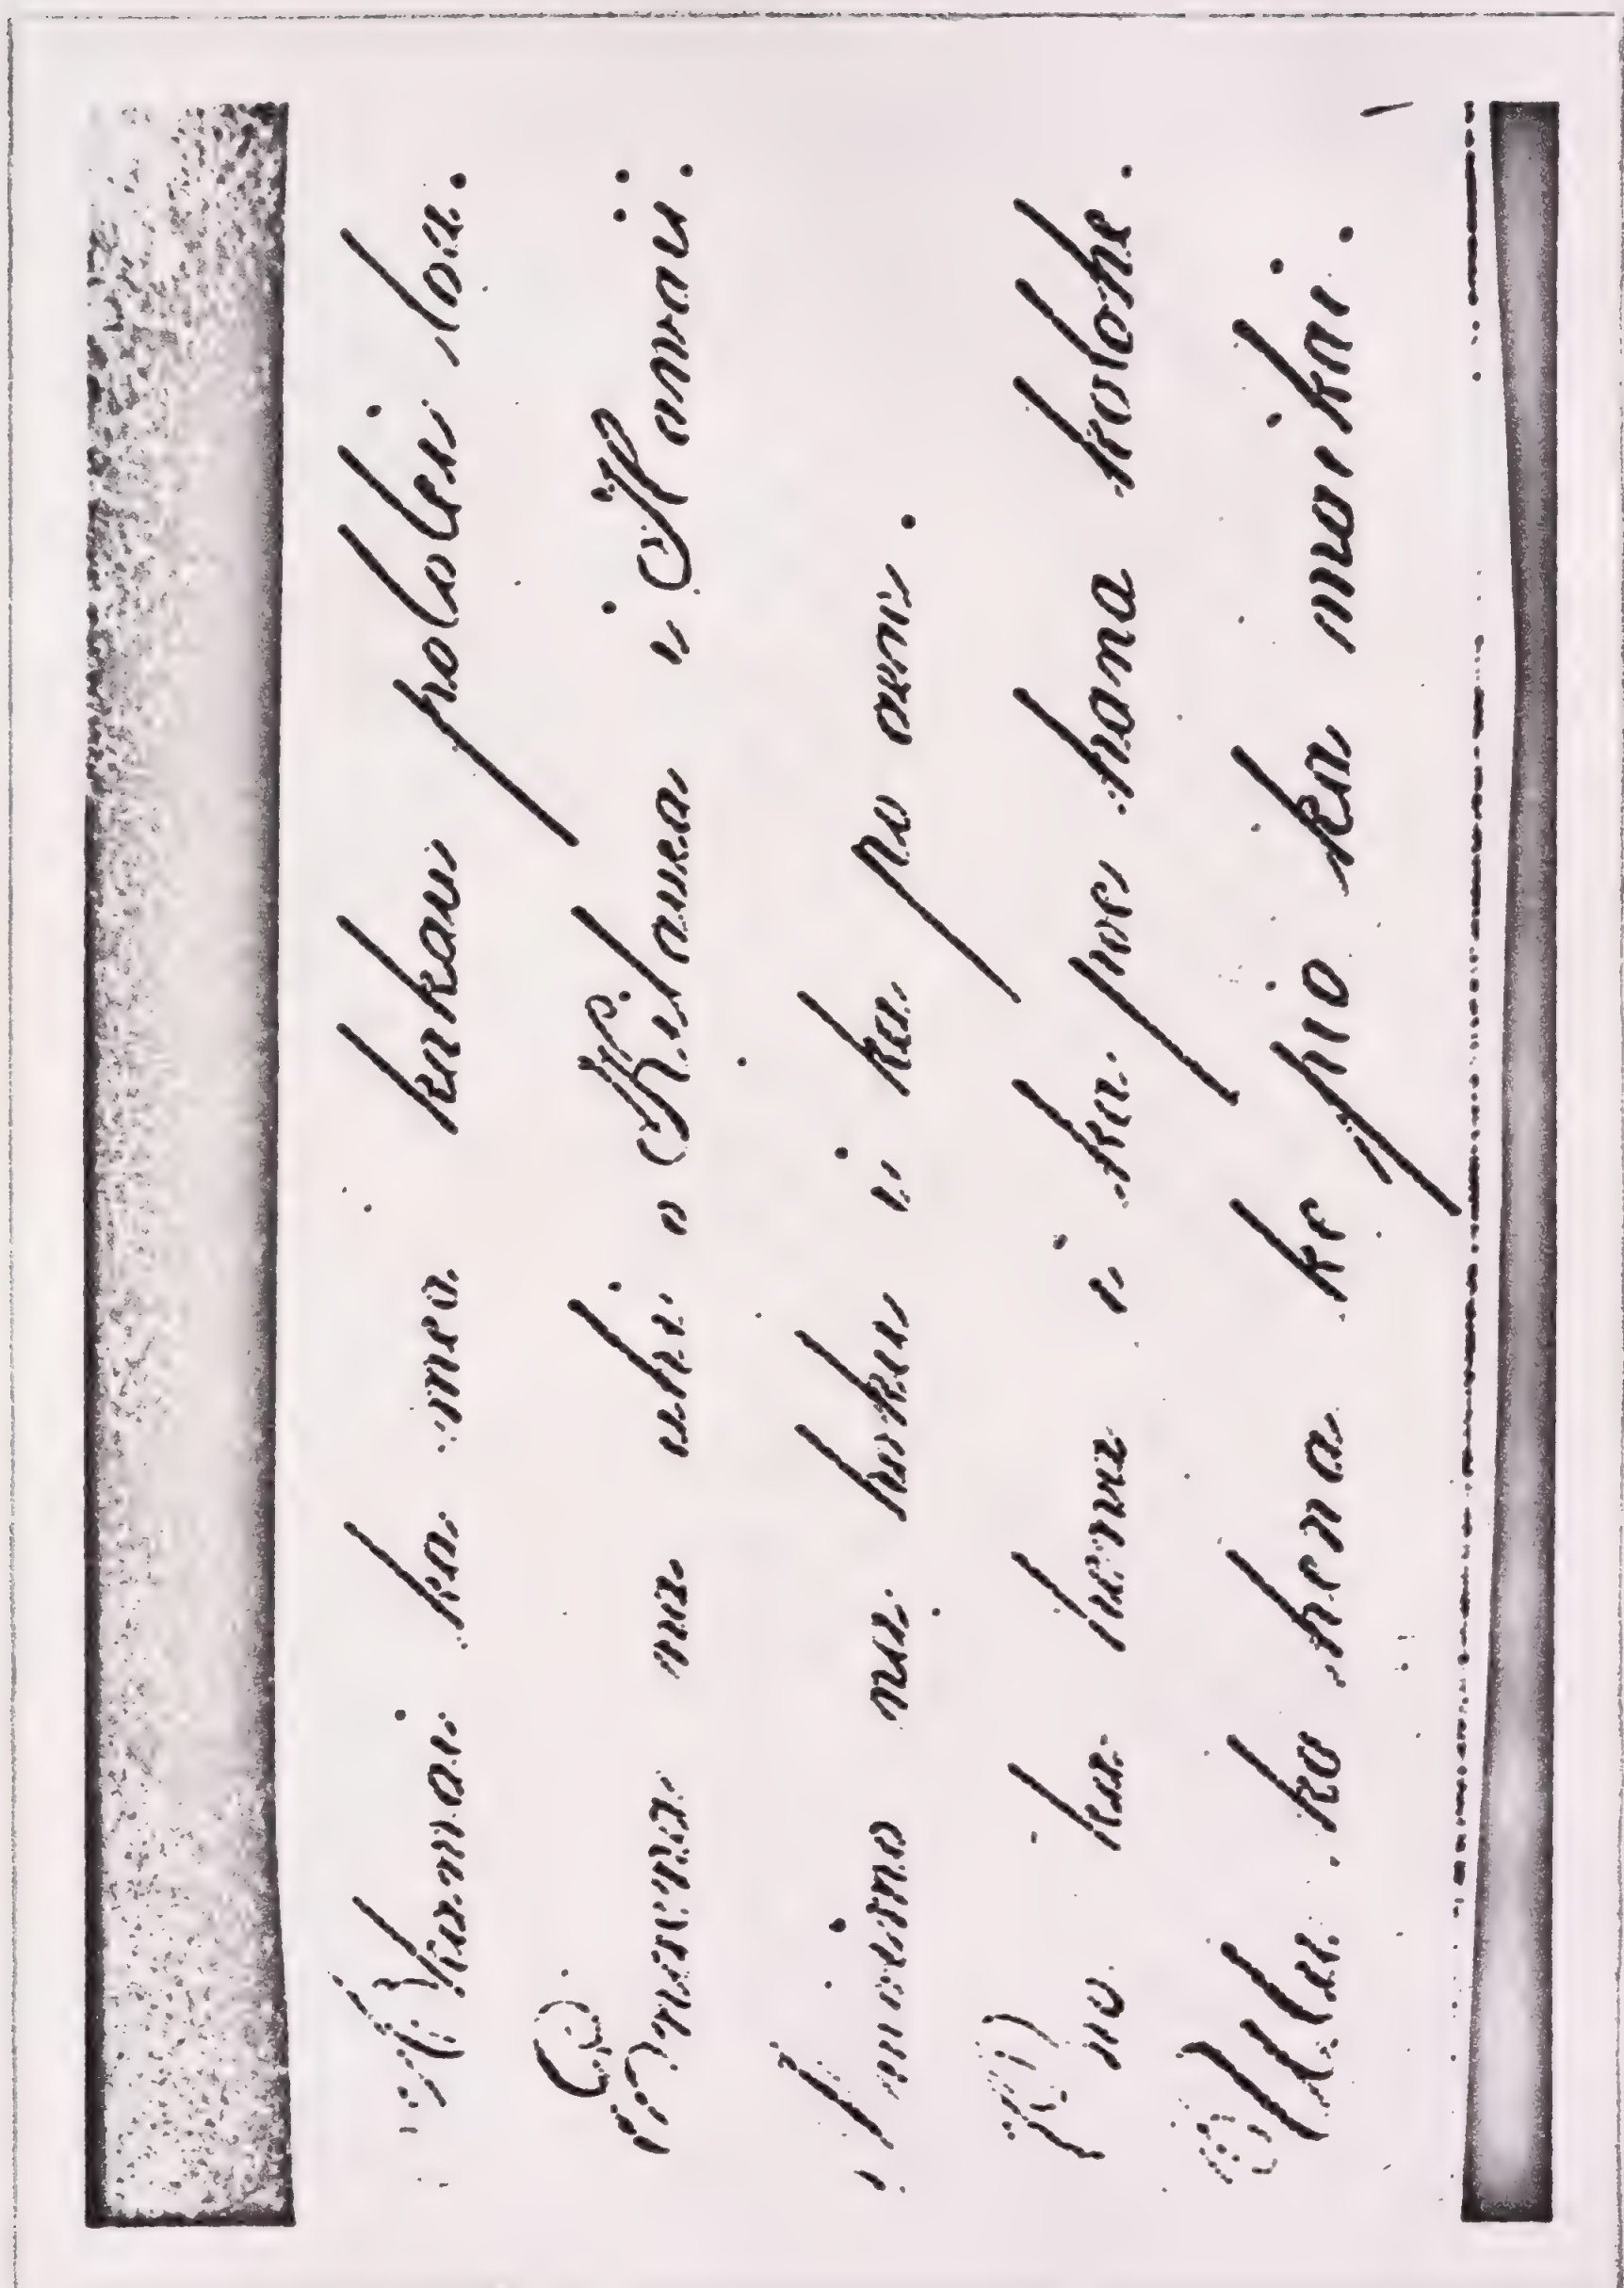 Akamai ka mea kakau pololei loa.
Enaena na ahi o Kilauea i Hawaii.
Imoimo na hoku i ka po
Ono ka hewa i ka poe hana kolohe.
Ulu ka hewa ke pio ka maikai.